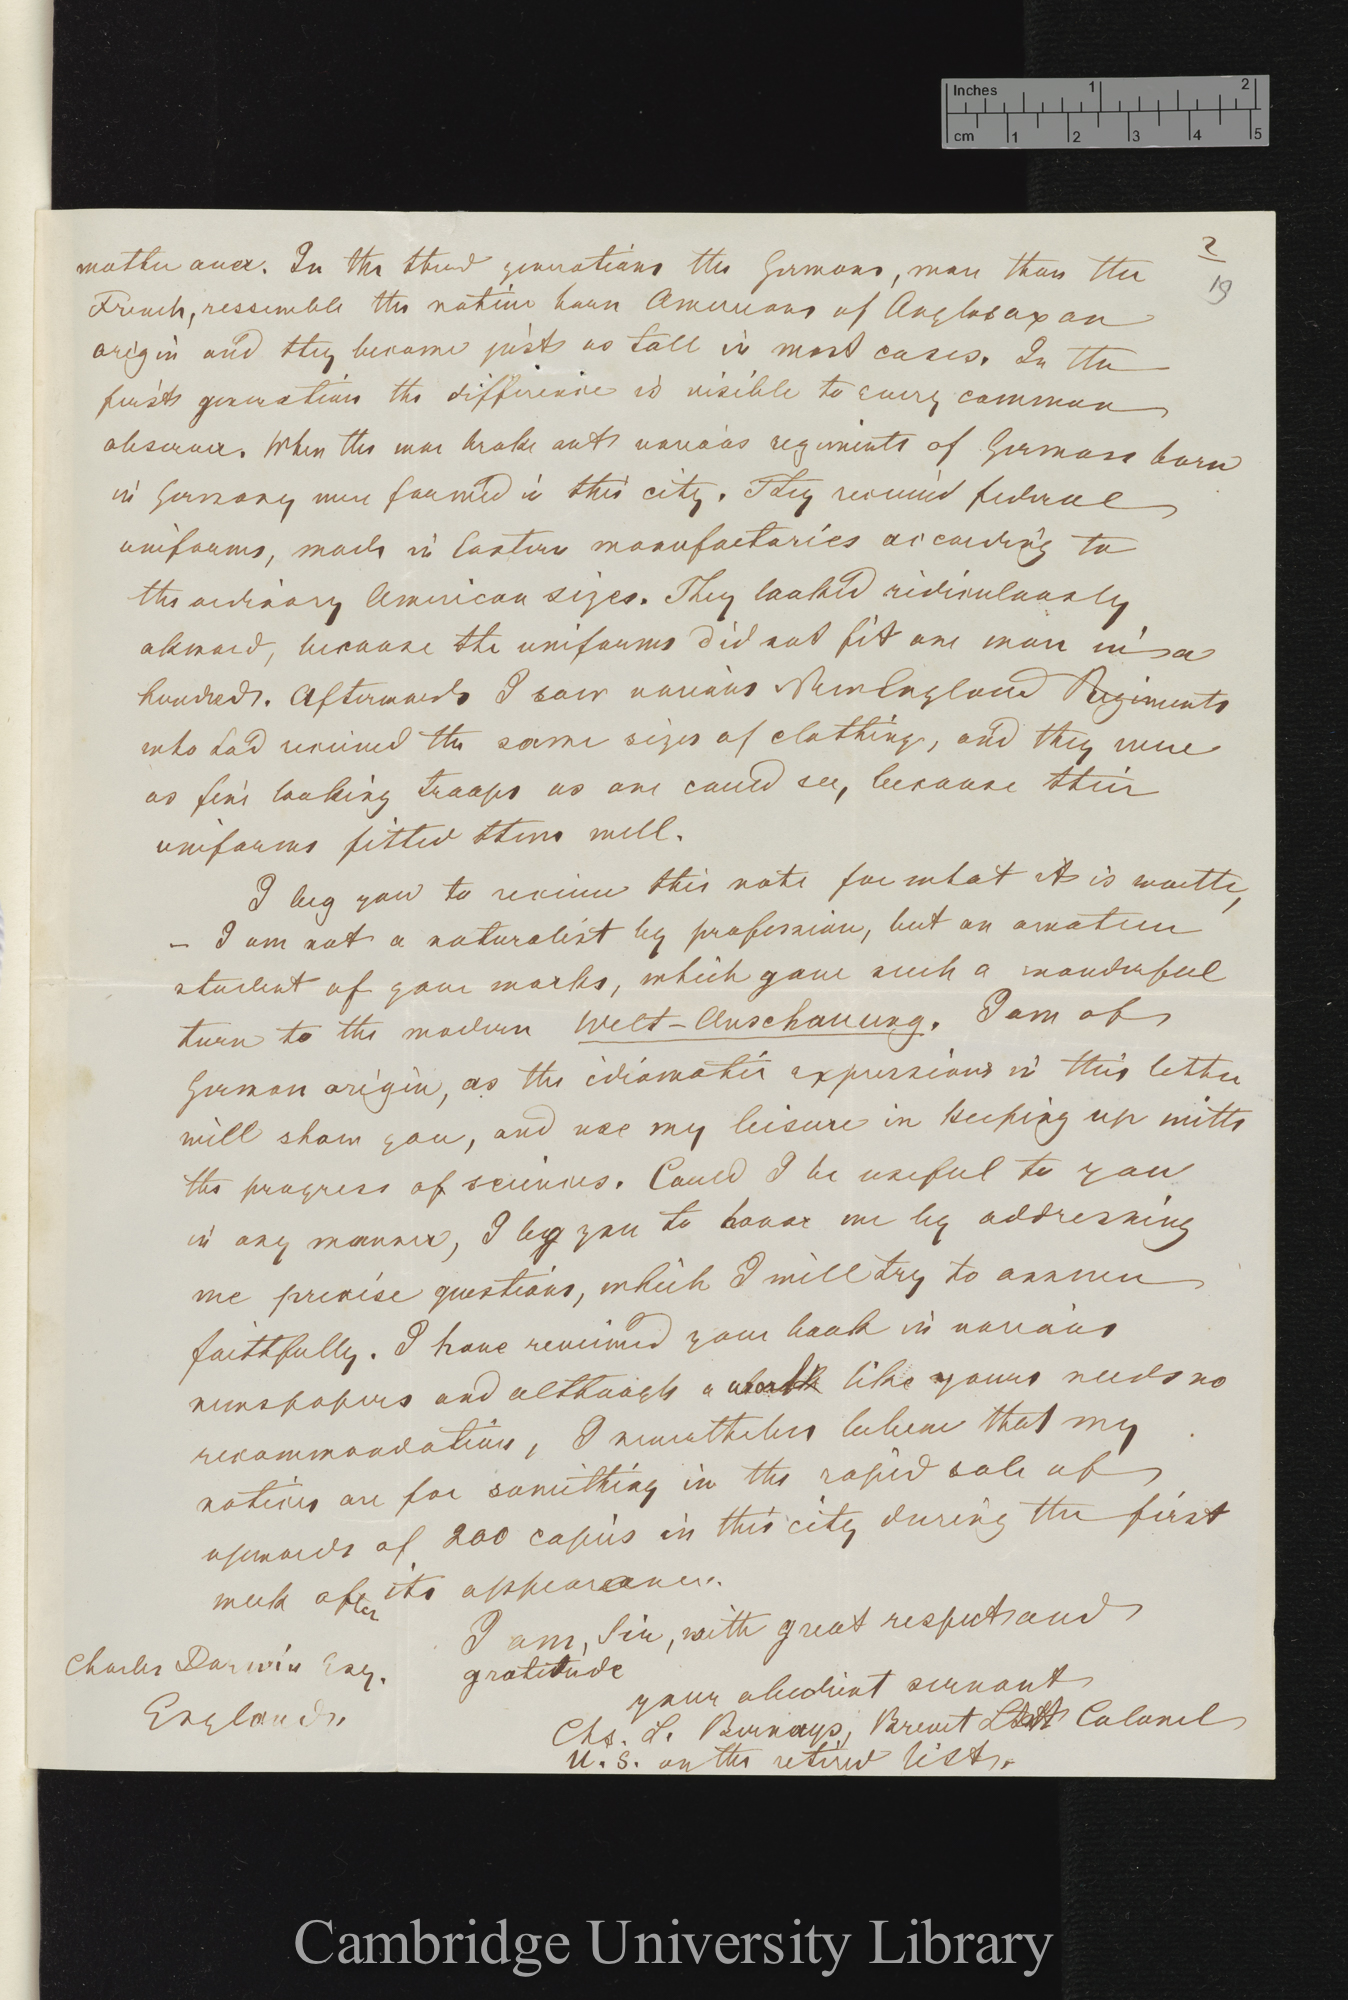 Inches 1 2
cm 1 2 3 4 5
2
19
matter over. In the third generations the Germans, more than the
French, ressemble the native born Americans of Anglosaxon
origin and they become just as tall in most cases. In the
first generation the difference is visible to every common
observer. When the war broke out various regiments of Germans born
in Germany were formed in this city. They received federal
uniforms, made in Eastern manufactories according to
the ordinary American sizes. They looked ridiculously
akward, because the uniforms did not fit one man in a
hundred. Afterwards I saw various New England Regiments
who had received the same sizes of clothing, and they were
as fine looking troops as one could see, because their
uniforms fitted them well.
I beg you to receive this note for what it is worth,
– I am not a naturalist by profession, but an amateur
student of your works, which gave such a wonderful
turn to the modern Welt-Anschauung. I am of
German origin, as the idiomatic expressions in this letter
will show you, and use my leisure in keeping up with
the progress of sciences. Could I be useful to you
in any manner, I beg you to honor me by addressing
me precise questions, which I will try to answer
faithfully. I have reviewed your book in various
newspapers and although a work like yours needs no
recommandation, I nevertheless believe that my
notices are for something in the rapid sale of
upwards of 200 copies in this city during the first
week after its appearance.
I am, Sir, with great respect and
gratitude
your obedient servant
Chs. L. Bernays, Brevet Lt Colonel
U. S. on the retired list.
Charles Darwin Esq.
England.
Cambridge University Library